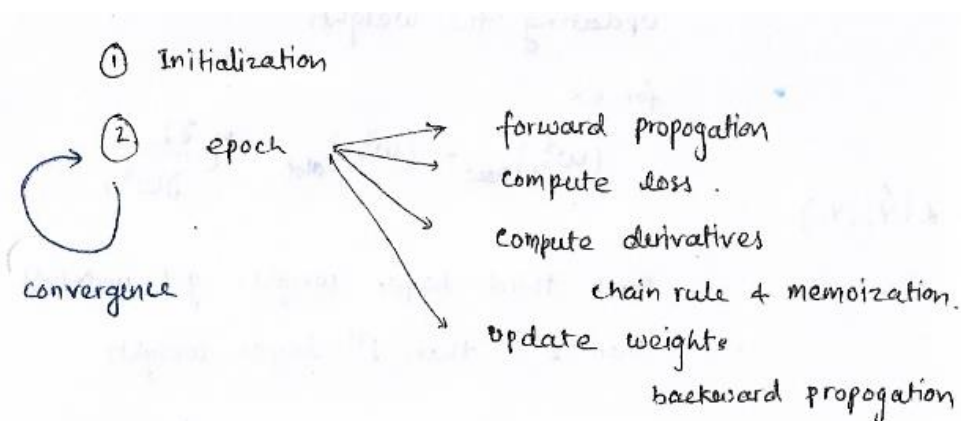 ① Initialization
② epoch
forward propogation
compute loss.
compute derivatives
chain rule & memoization.
update weights
backward propogation
convergence